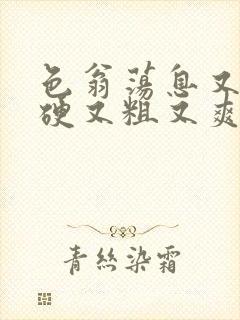 色翁荡息又
硬又粗又爽
青丝染霜